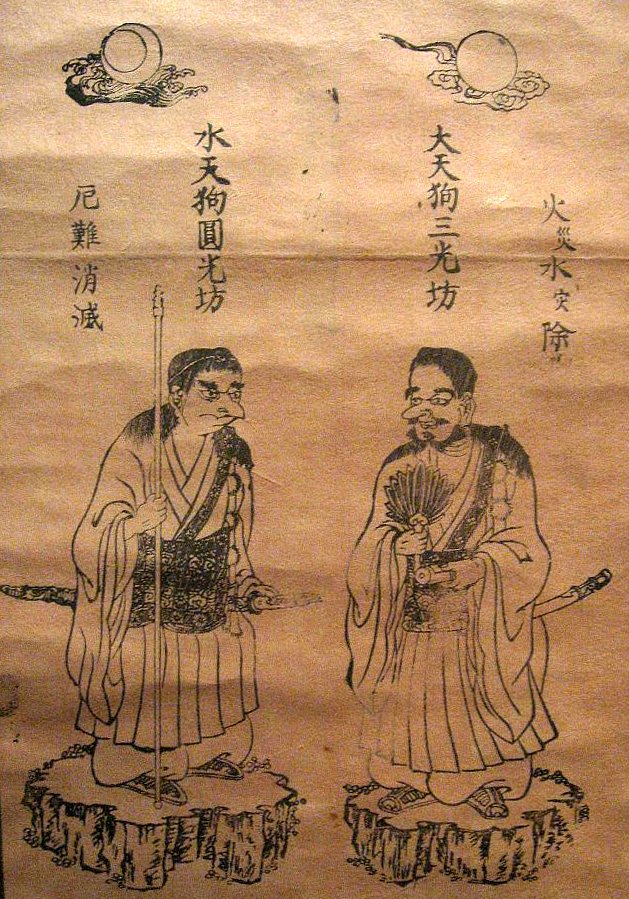 火災水灾除
大天狗三光坊
水天狗圓光坊
厄難消滅